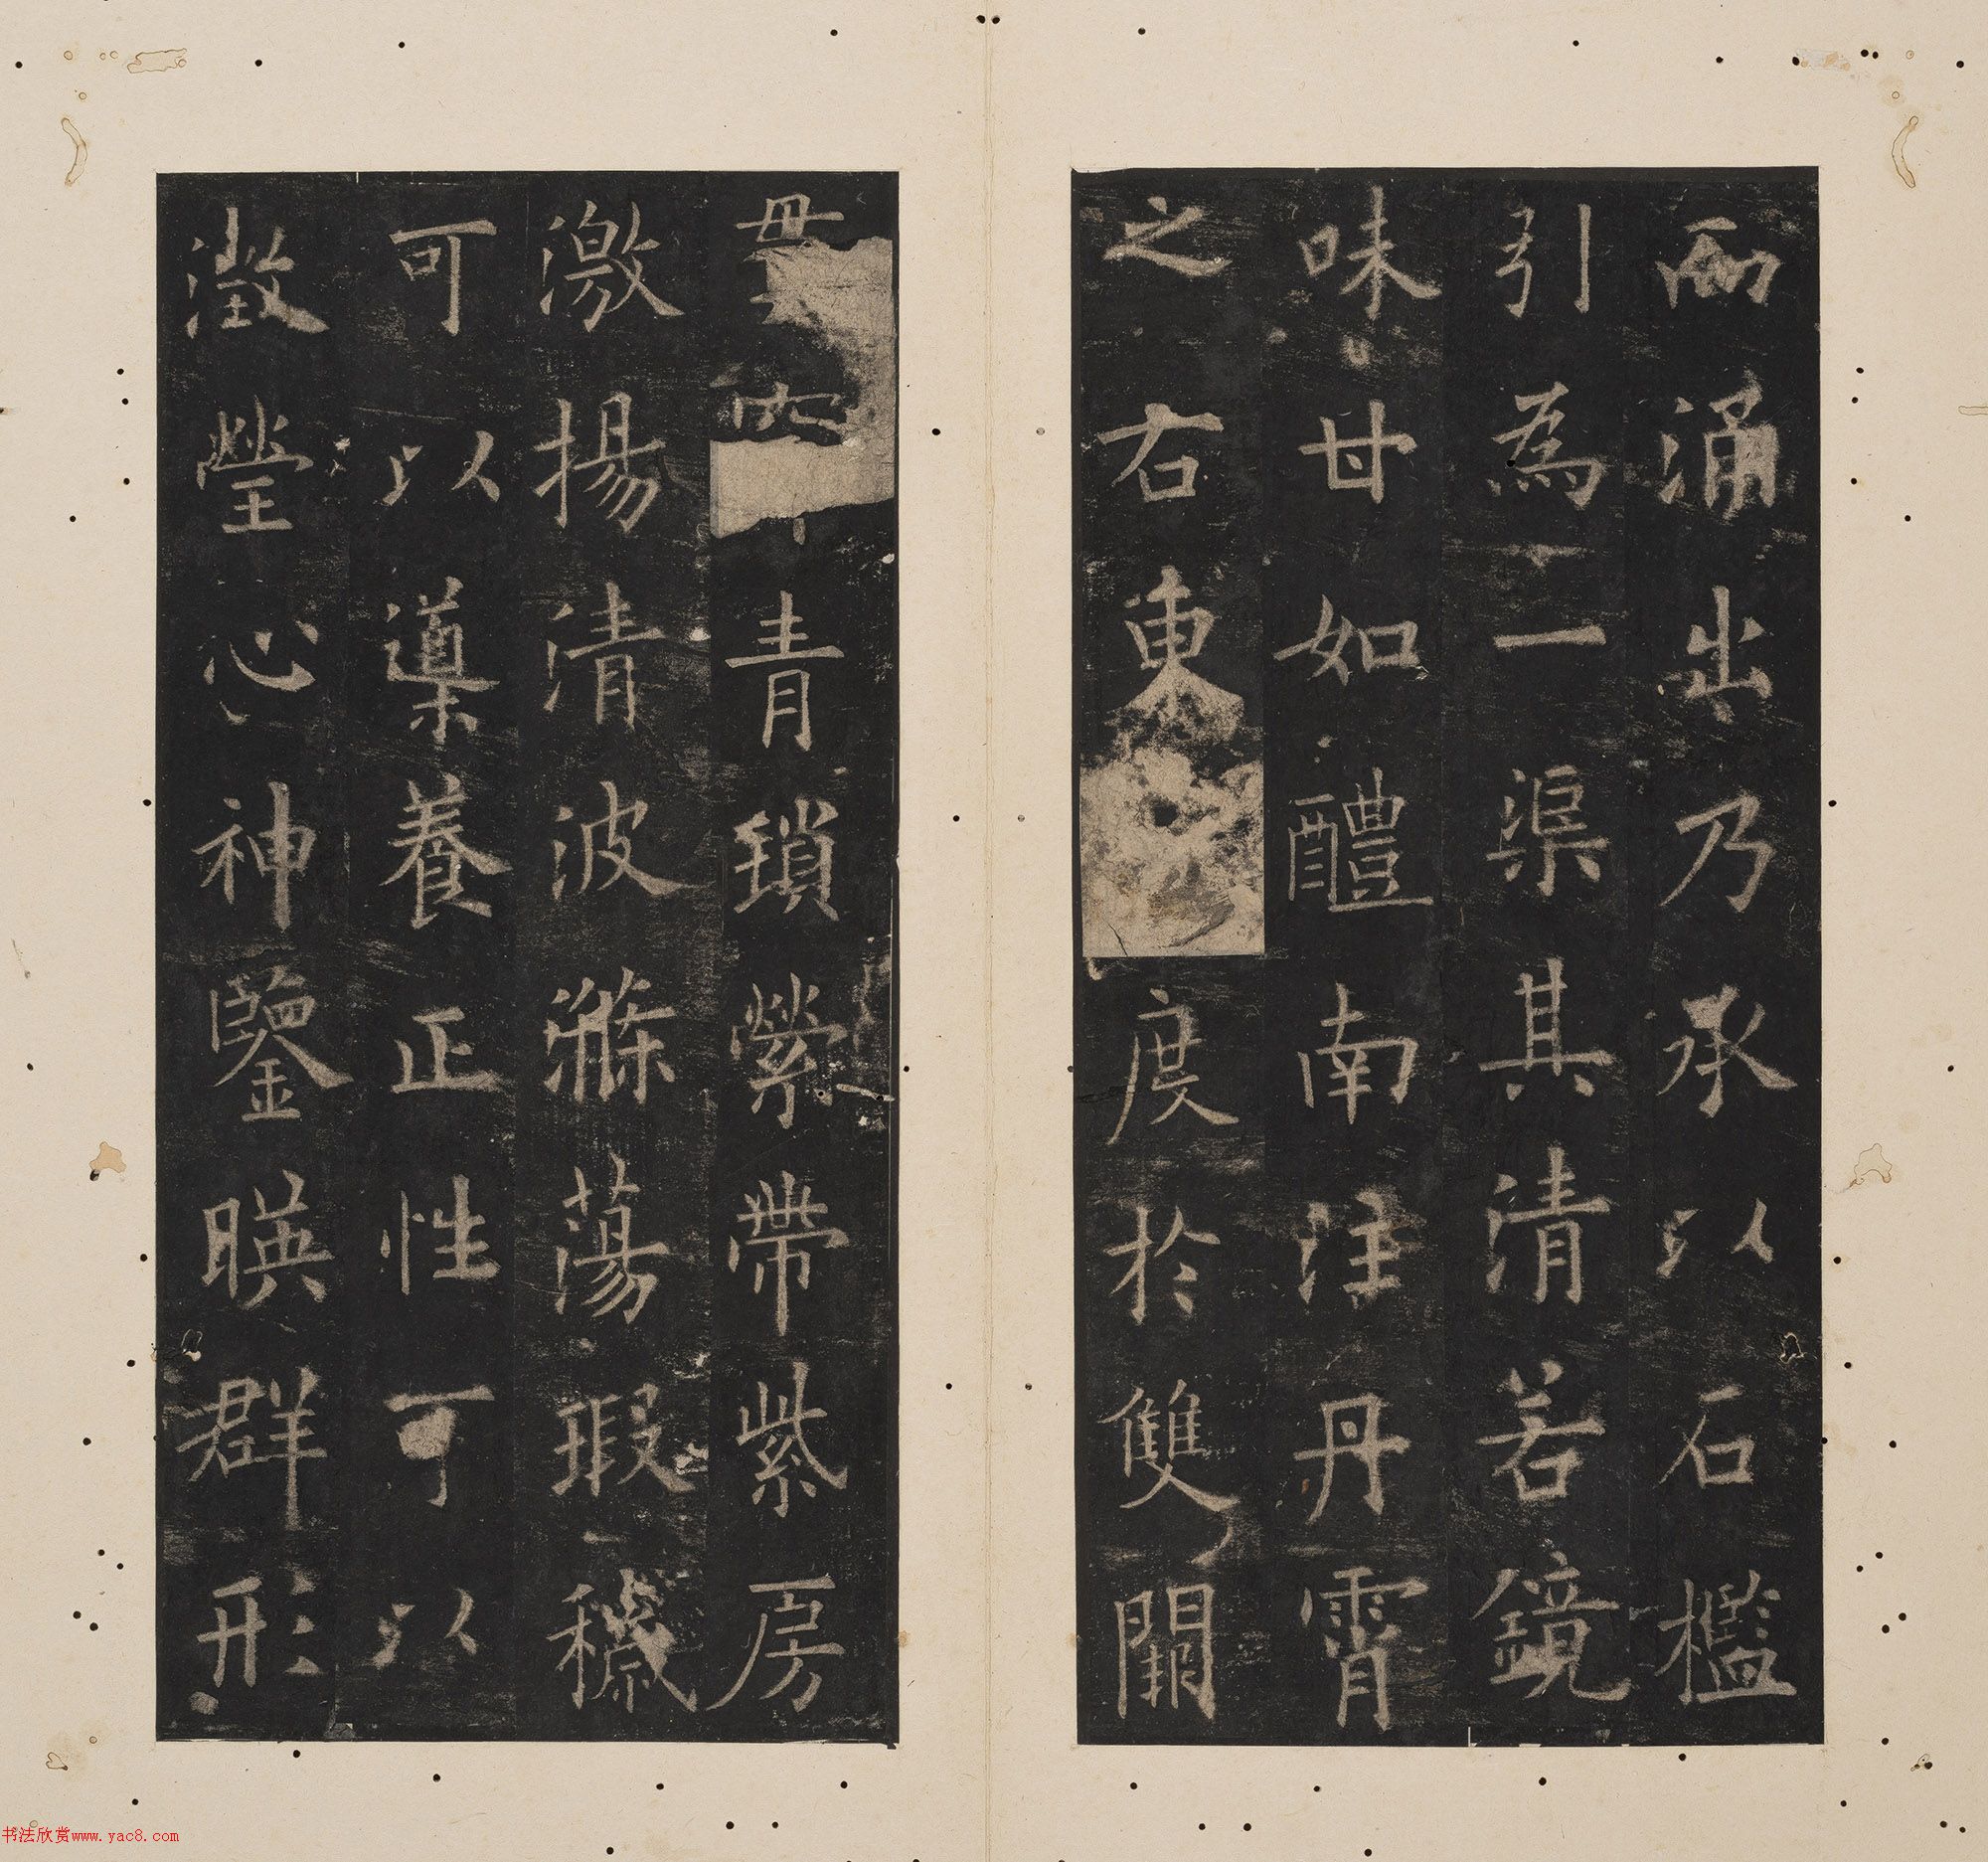 而涌出乃承以石檻
引為一渠其清若鏡
味甘如醴南注丹霄
之右東度於雙闕
青瑣縈帶紫房
激揚清波滌蕩瑕穢
可以導養正性可以
澂瑩心神鑒暎群形
书法欣赏www.yac8.com